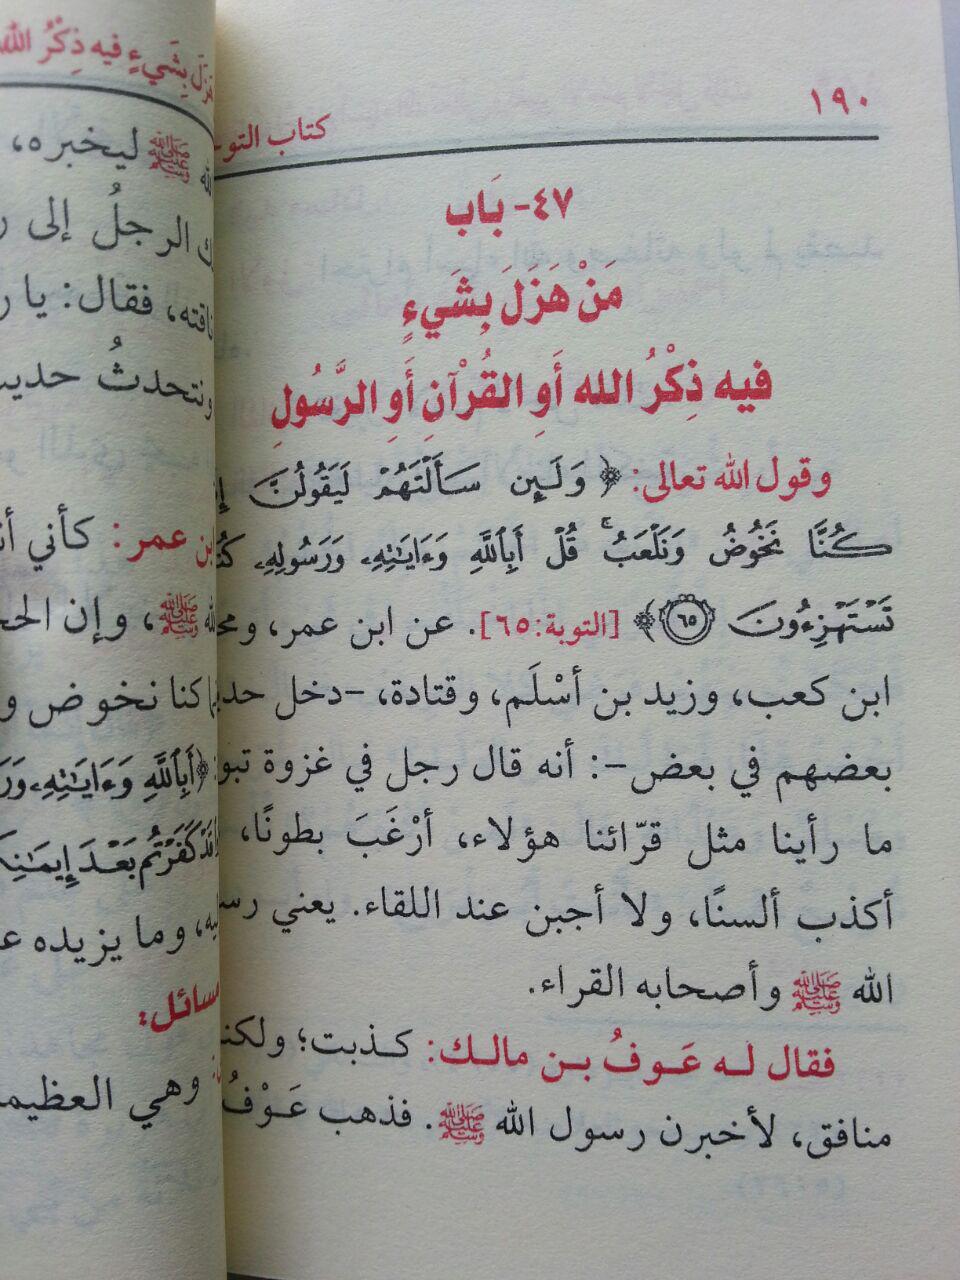 ١٩٠
كتاب التو
٤٧- بَاب
مَنْ هَزَلَ بِشَيءٍ
فيه ذِكْرُ الله أَوِ القُرْآنِ أَوِ الرَّسُولِ
وقول الله تعالى: ﴿ وَلَئِن سَأَلْتَهُمْ لَيَقُولُنَّ
كُنَّا نَخُوضُ وَنَلْعَبُ ۚ قُلْ أَبِٱللَّهِ وَءَايَٰتِهِۦ وَرَسُولِهِۦ
تَسْتَهْزِءُونَ ٦٥ ﴾ [التوبة:٦٥]. عن ابن عمر،
ابن كعب، وزيد بن أسْلَم، وقتادة، -دخل
بعضهم في بعض-: أنه قال رجل في غزوة تبو
ما رأينا مثل قرّائنا هؤلاء، أرْغَبَ بطونًا،
أكذب ألسنًا، ولا أجبن عند اللقاء. يعني رس
الله ﷺ وأصحابه القراء.
فقال له عَوفُ بن مالك: كذبت؛ ولكن
منافق، لأخبرن رسول الله ﷺ. فذهب عَوْفُ
بِشَيءٍ فيه ذِكْرُ الله
ﷺ ليخبره،
الرجلُ إلى
فقال: يا
ونتحدثُ
ابن عمر: كأني
ﷺ، وإن
كنا نخوض
﴿أَبِٱللَّهِ وَءَايَٰتِهِۦ
كَفَرْتُم بَعْدَ
وما يزيده
وهي